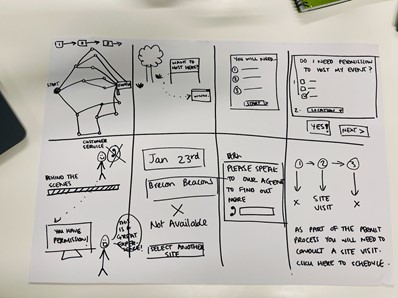 1 → 2 → 3
START
WANT TO
HOST HERE?
YOU WILL NEED...
1
2
3
START
DO I NEED PERMISSION
TO HOST MY EVENT?
1.
2. LOCATION
YES!
NEXT >
CUSTOMER
SERVICE
BEHIND
THE
SCENES
YOU HAVE
PERMISSION!
THIS
IS A
GREAT
EXPER-
IENCE!
Jan 23rd
Brecon Beacons
X
Not Available
SELECT ANOTHER
SITE
PLEASE SPEAK
TO OUR AGENT
TO FIND OUT
MORE
1 → 2 → 3
X SITE X
VISIT
AS PART OF THE PERMIT
PROCESS YOU WILL NEED TO
CONDUCT A SITE VISIT.
CLICK HERE TO SCHEDULE.